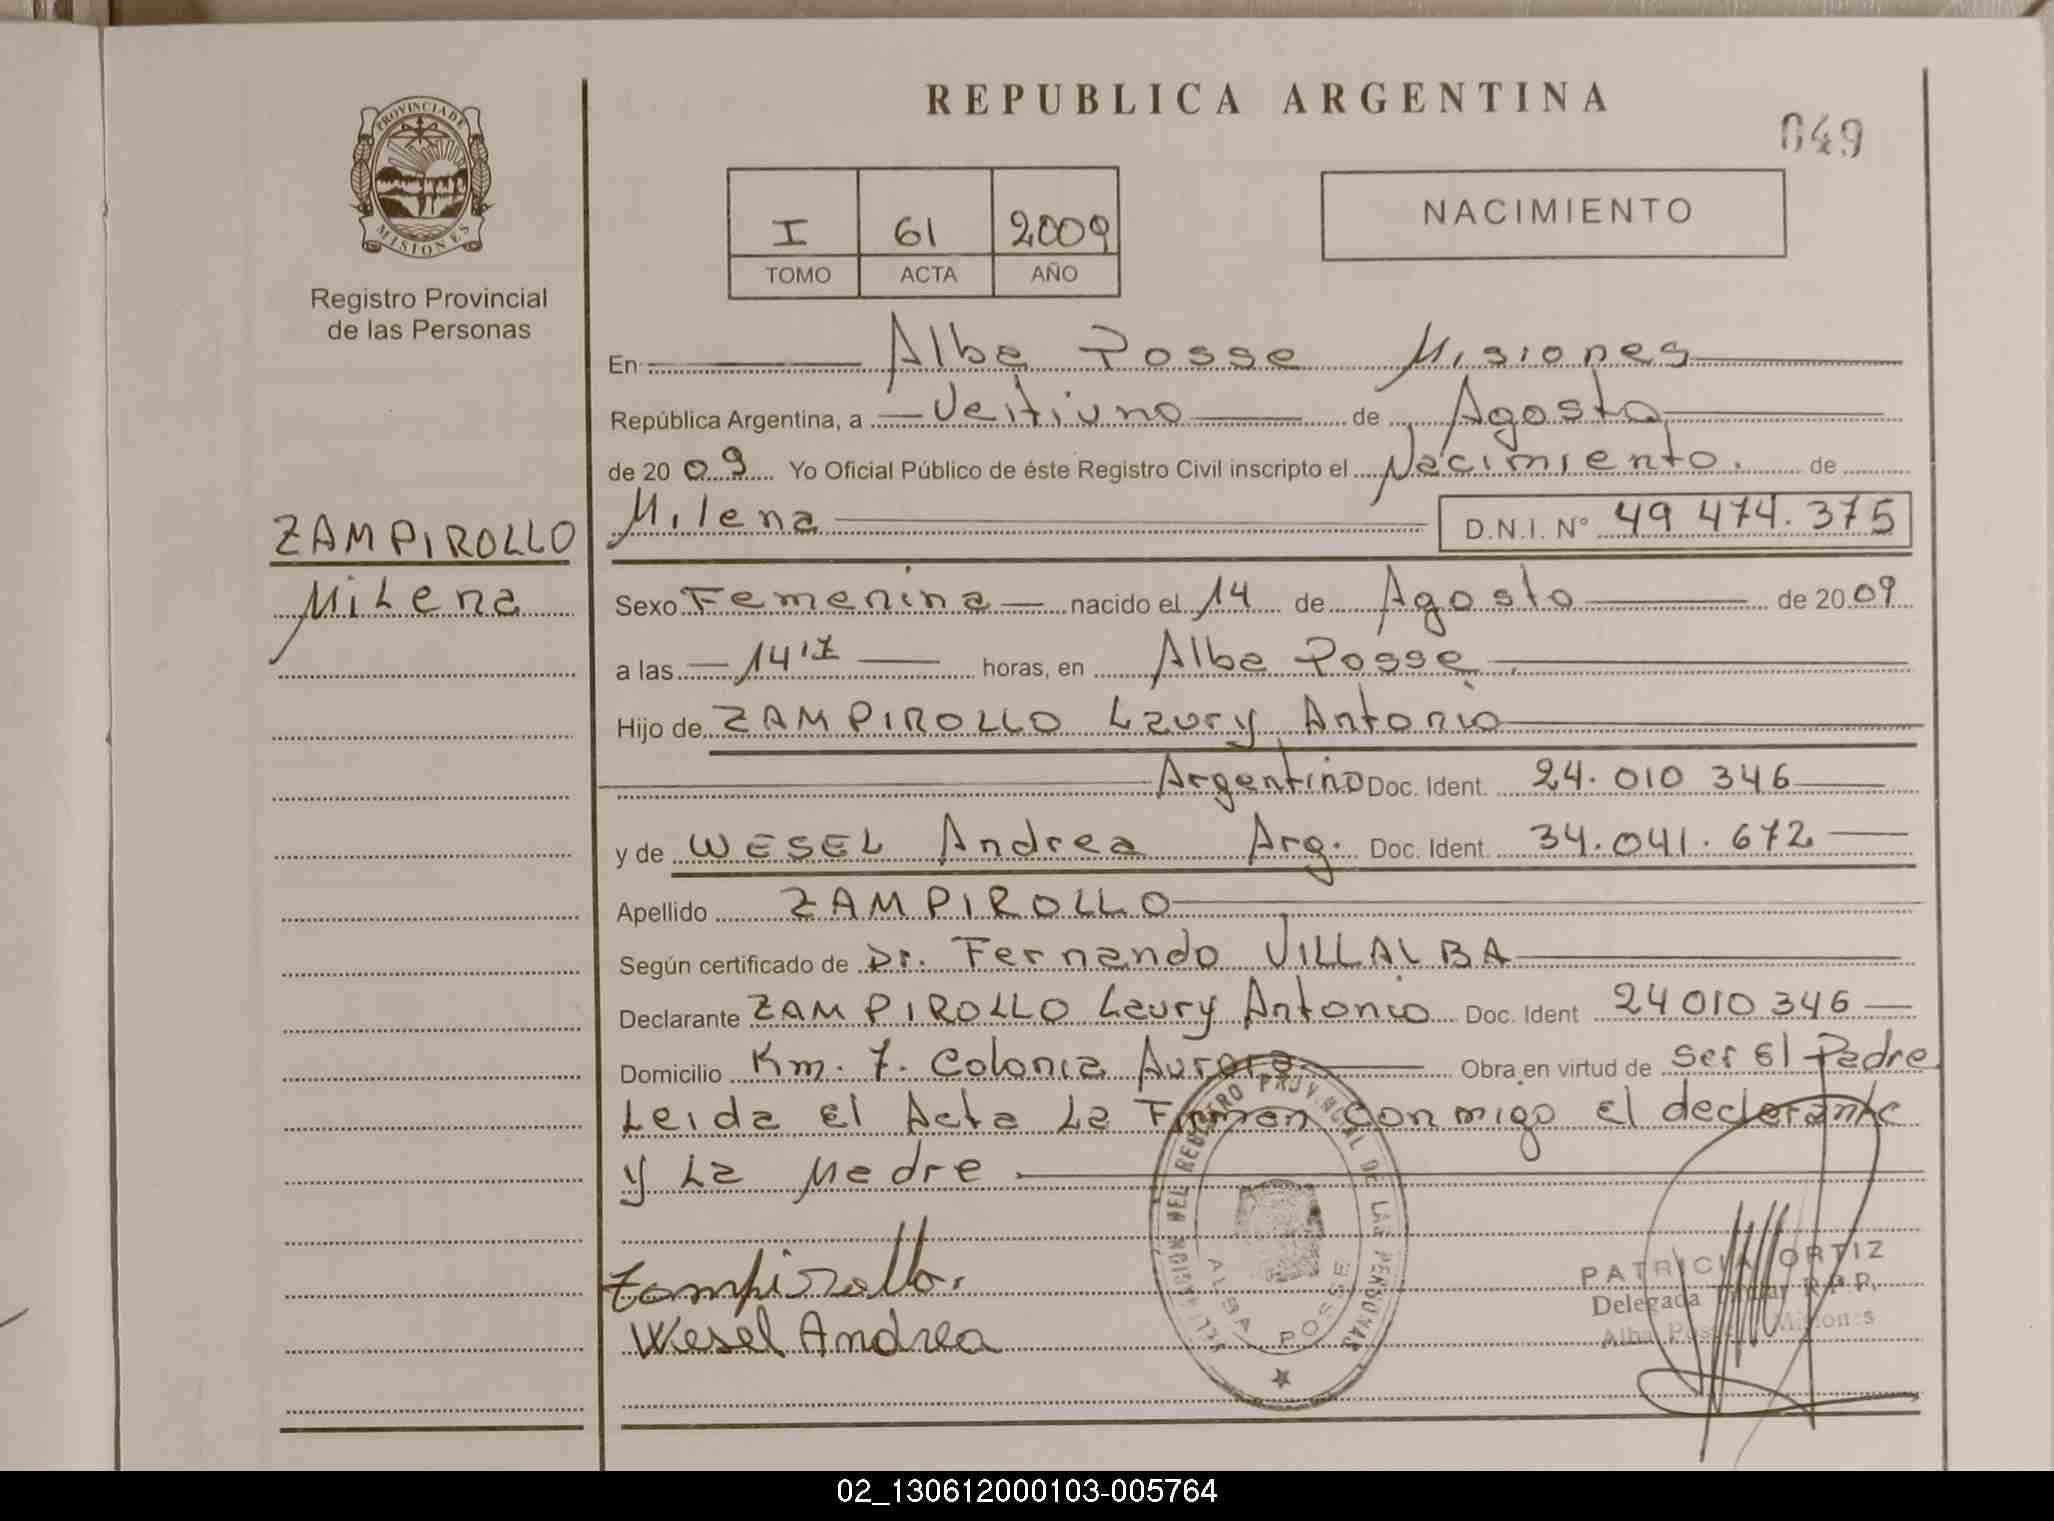 REPUBLICA ARGENTINA
049
PROVINCIA DE
MISIONES
Registro Provincial
de las Personas
I 61 2009
TOMO ACTA AÑO
NACIMIENTO
En Alba Posse Misiones
República Argentina, a Veitiuno de Agosto
de 20 09 Yo Oficial Público de éste Registro Civil inscripto el Nacimiento. de
Milena D.N.I. N° 49 474.375
ZAMPIROLLO
Milena
Sexo Femenina nacido el 14 de Agosto de 20 09
a las 14 horas, en Alba Posse
Hijo de ZAMPIROLLO Laury Antonio
Argentino Doc. Ident. 24.010 346
y de WESEL Andrea Arg. Doc. Ident. 34.041.672
Apellido ZAMPIROLLO
Según certificado de Dr. Fernando VILLALBA
Declarante ZAMPIROLLO Laury Antonio Doc. Ident 24 010 346
Domicilio Km. 7. Colonia Aurora Obra en virtud de Ser El Padre
Leida el Acta La Firman conmigo el declarante
y La Madre
Zampirollo.
Wesel Andrea
REGISTRO PROVINCIAL DE LAS PERSONAS
ALBA POSSE
PATRICIA ORTIZ
Delegada Titular R.P.P.
Alba Posse Misiones
02_130612000103-005764